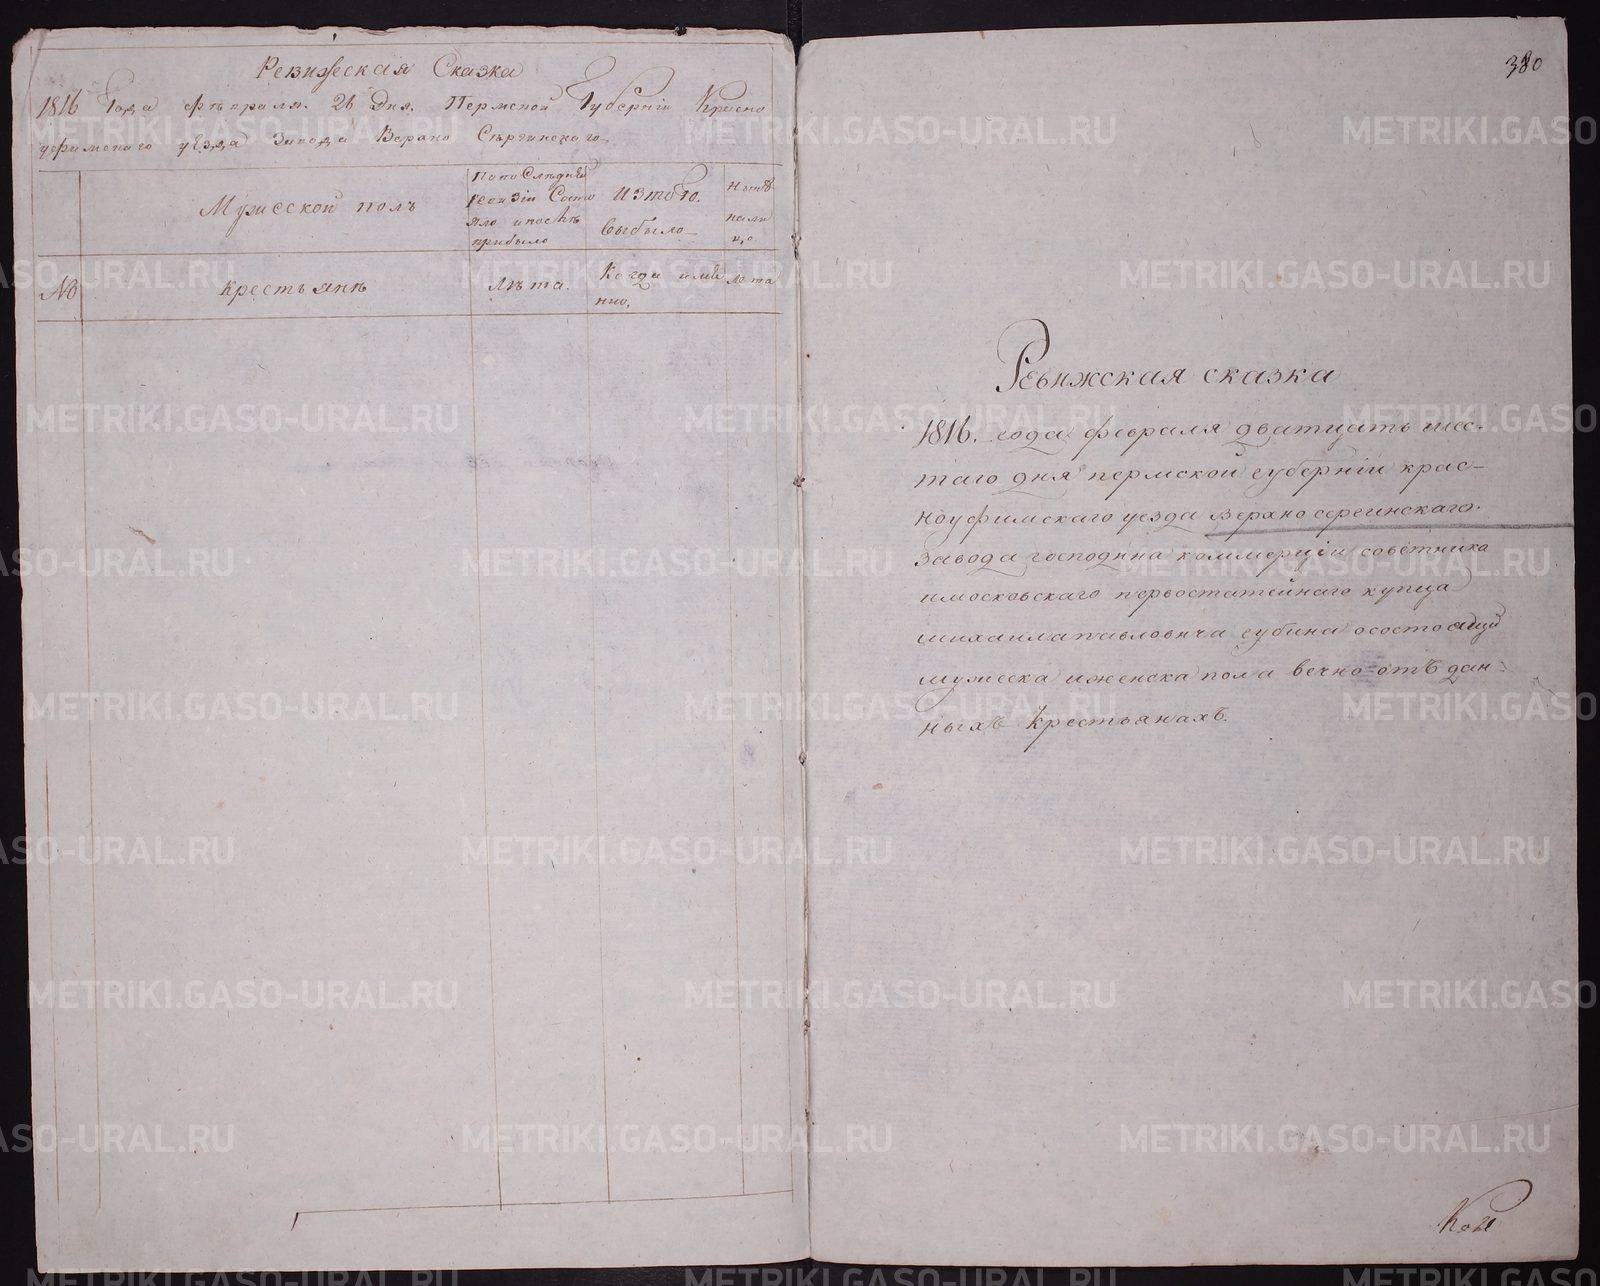 Ревижеская Сказка
1816 Года февраля. 26 Дня. Пермской Губерніи Красно
уфимскаго уезда Завода Верхно Сергинскаго
Мужеской полъ
По последней
ревизіи Состо
яло и после
прибыло
Изтого.
выбыло
Ныне
нали
цо
№
Крестьяне
Лета.
Когда имя
нно,
Лета
380
Ревижская сказка
1816. года февраля дватцать шес-
таго дня пермской губерніи крас-
ноуфимскаго уезда верхно сергинскаго
завода господина коммерціи советника
имосковскаго первостатейнаго купца
михаила павловича губина осостоящи
мужеска иженска пола вечно отъ дан-
ныхъ крестьянахъ.
METRIKI.GASO-URAL.RU